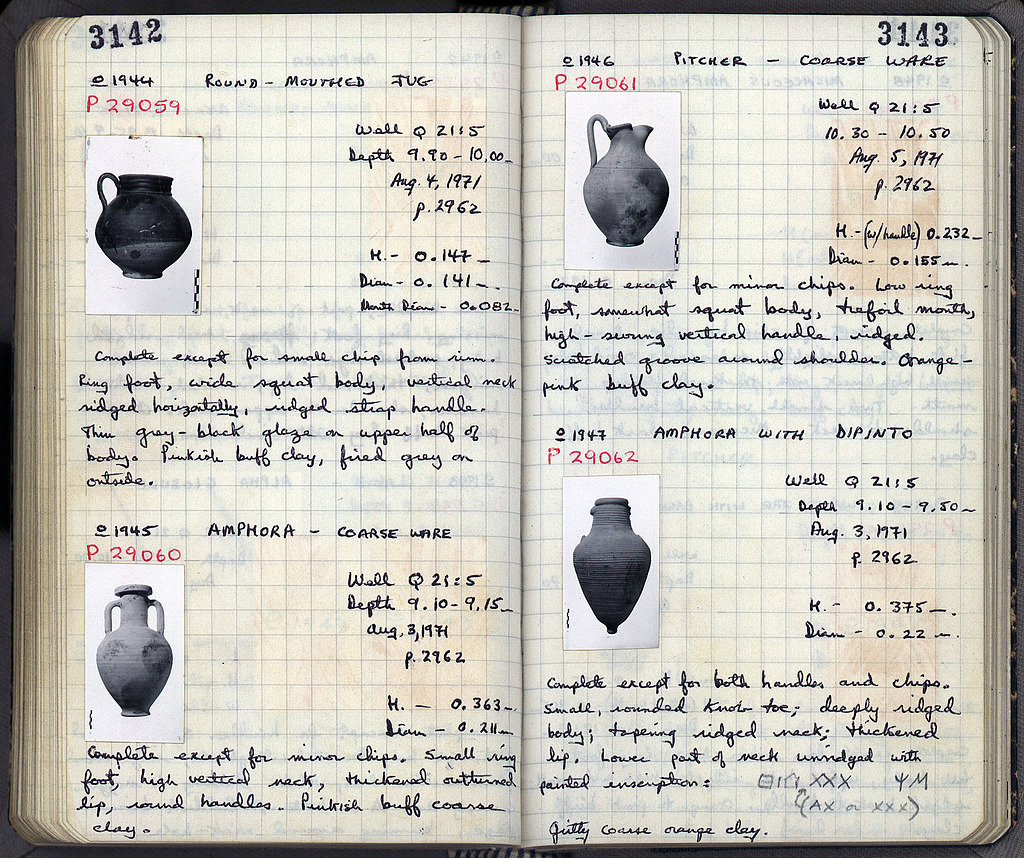 3142
o 1944 ROUND-MOUTHED JUG
P 29059
Well Q 21:5
Depth 9.90-10.00
Aug. 4, 1971
p. 2962
H. - 0.147
Diam - 0.141
Mouth Diam - 0.082
Complete except for small chip from rim.
Ring foot, wide squat body, vertical neck
ridged horizontally, ridged strap handle.
Thin grey-black glaze on upper half of
body. Pinkish buff clay, fired grey on
outside.
o 1945 AMPHORA - COARSE WARE
P 29060
Well Q 21:5
Depth 9.10-9.15
Aug. 3, 1971
p. 2962
H. - 0.363
Diam - 0.211
Complete except for minor chips. Small ring
foot, high vertical neck, thickened outturned
lip, round handles. Pinkish buff coarse
clay.
3143
o 1946 PITCHER - COARSE WARE
P 29061
Well Q 21:5
10.30 - 10.50
Aug. 5, 1971
p. 2962
H. - (w/handle) 0.232
Diam - 0.155 m.
Complete except for minor chips. Low ring
foot, somewhat squat body, trefoil mouth,
high-swung vertical handle, ridged.
Scratched groove around shoulder. Orange-
pink buff clay.
o 1947 AMPHORA WITH DIPINTO
P 29062
Well Q 21:5
Depth 9.10 - 9.50
Aug. 3, 1971
p. 2962
H. - 0.375
Diam - 0.22 m.
Complete except for both handles and chips.
Small, rounded knob toe; deeply ridged
body; tapering ridged neck; thickened
lip. Lower part of neck unridged with
painted inscription: XXX ΨM
(AX or XXX)
Gritty coarse orange clay.